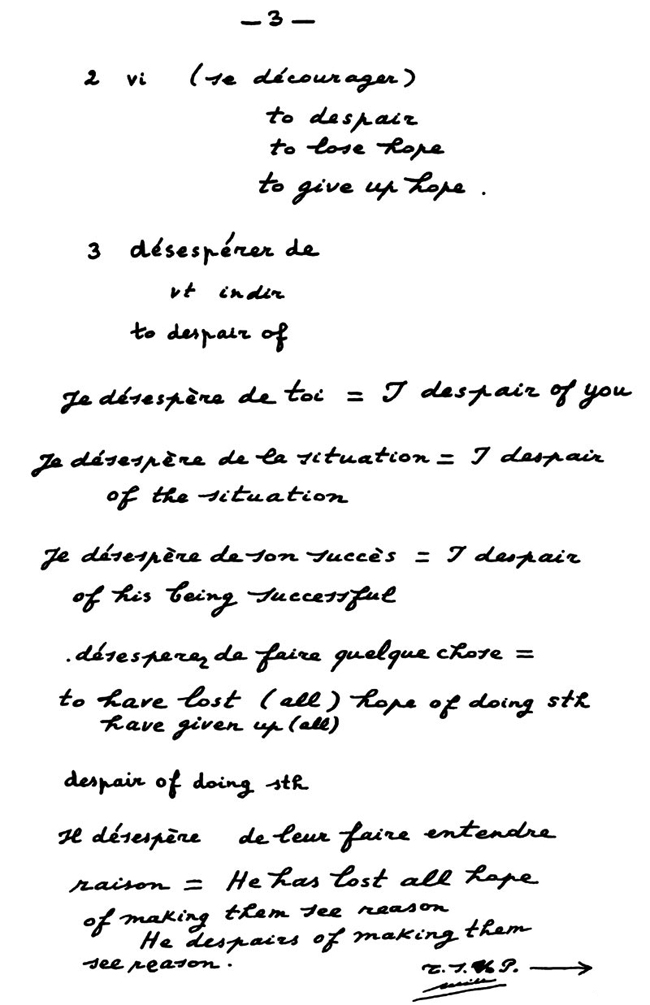 — 3 —
2 vi (se décourager)
to despair
to lose hope
to give up hope.
3 désespérer de
vt indir
to despair of
Je désespère de toi = I despair of you
Je désespère de la situation = I despair
of the situation
Je désespère de son succès = I despair
of his being successful
.désesperez de faire quelque chose =
to have lost (all) hope of doing sth
have given up (all)
despair of doing sth
Il désespère de leur faire entendre
raison = He has lost all hope
of making them see reason
He despairs of making them
see reason.